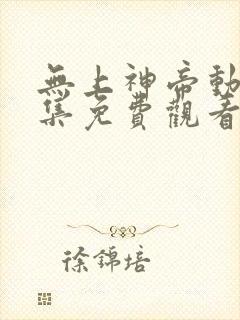 無上神帝動
集免費觀看
徐錦培